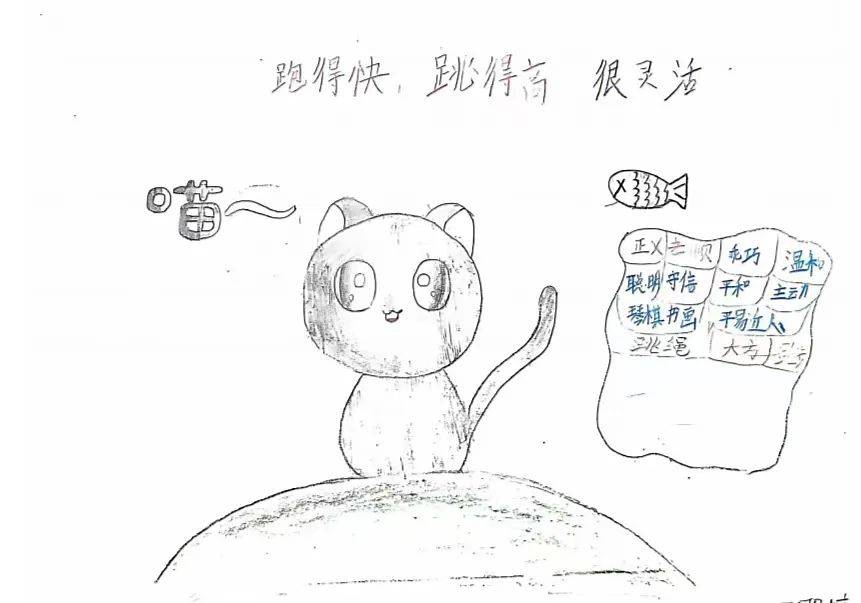 跑得快，跳得高 很灵活
喵
正义 乖巧 温和
聪明 守信 平和 主动
琴棋书画 平易近人
跳绳 大方